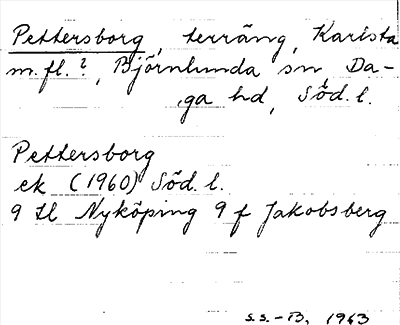 Pettersborg, terräng, Karlsta
m.fl.?, Björnlunda sn, Da-
ga hd, Söd. l.
Pettersborg
ek (1960) Söd. l.
9 Hl Nyköping 9 f Jakobsberg
s.s.-B, 1963